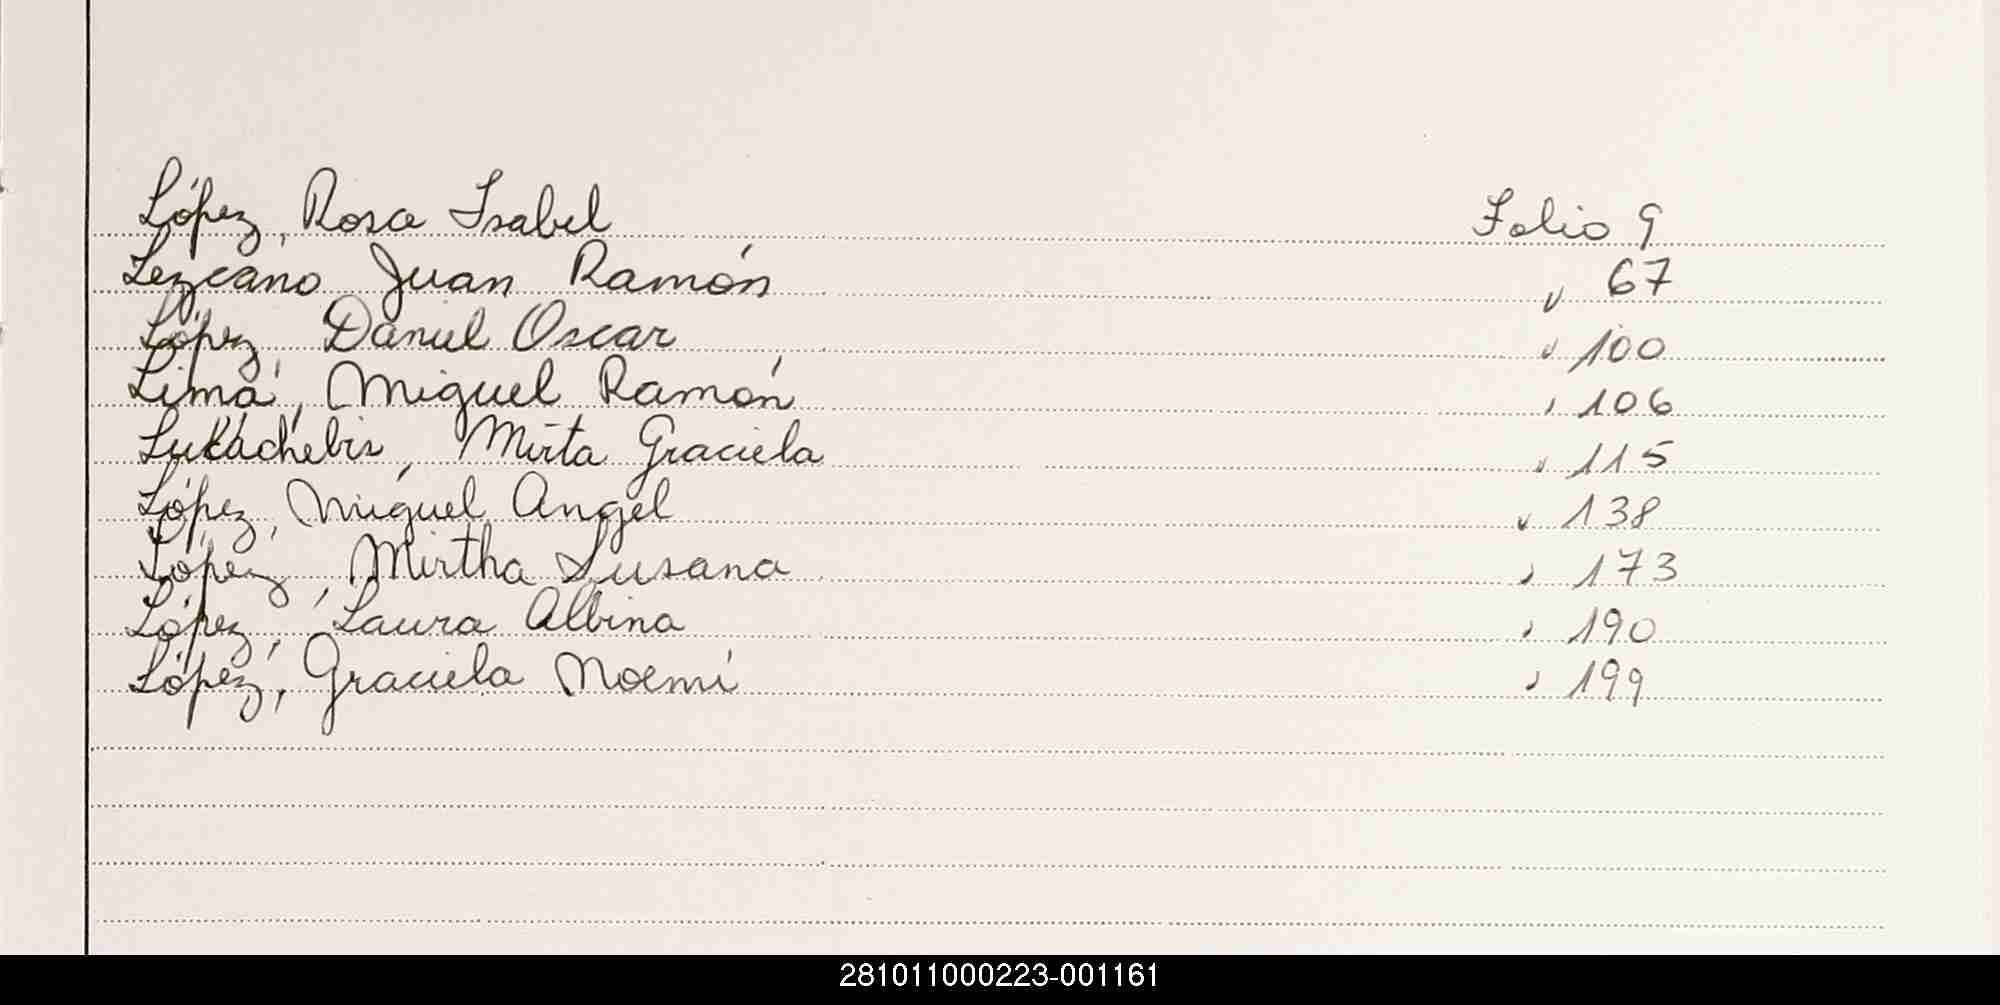 López, Rosa Isabel Folio 9
Lezcano Juan Ramón " 67
López, Daniel Oscar " 100
Lima, Miguel Ramón " 106
Mirta Graciela " 115
López, Miguel Angel " 138
López, Mirtha Susana " 173
López, Laura Albina " 190
López, Graciela Noemí " 199
281011000223-001161